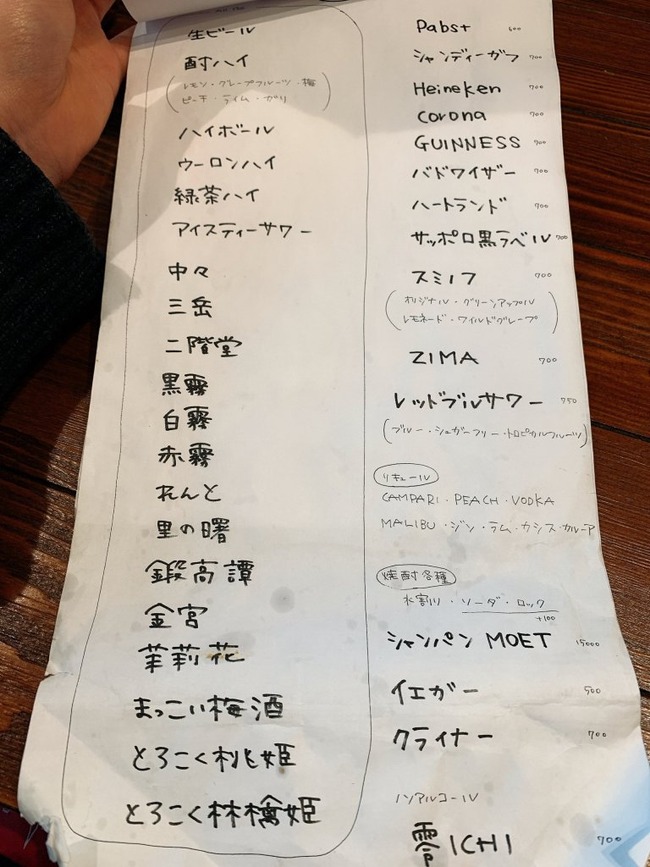 生ビール
酎ハイ
(レモン・グレープフルーツ・梅
ピーチ・ライム・ガリ)
ハイボール
ウーロンハイ
緑茶ハイ
アイスティーサワー
中々
三岳
二階堂
黒霧
白霧
赤霧
れんと
里の曙
鍛高譚
金宮
茉莉花
まっこい梅酒
とろこく桃姫
とろこく林檎姫
Pabst 600
シャンディーガフ 700
Heineken 700
corona 700
GUINNESS 700
バドワイザー 700
ハートランド 700
サッポロ黒ラベル 700
スミノフ 700
(オリジナル・グリーンアップル
レモネード・ワイルドグレープ)
ZIMA 700
レッドブルサワー 750
(ブルー・シュガーフリー・トロピカルフルーツ)
リキュール
CAMPARI・PEACH・VODKA
MALIBU・ジン・ラム・カシス・カルーア
焼酎各種
水割り・ソーダ・ロック
+100
シャンパン MOET 15000
イエガー 500
クライナー 700
ノンアルコール
零ICHI 700